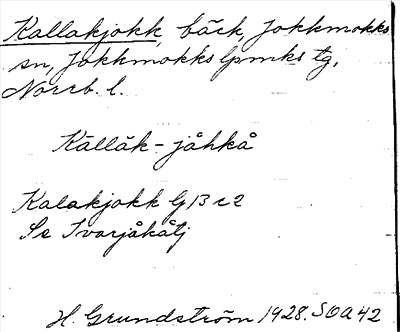 Kallakjokk, bäck, Jokkmokks
sn, Jokkmokks lpmks tg,
Norrb. l.
Kāllāk-jåhkå
Kalakjokk GB c2
Se Ivarjåkåtj
H. Grundström 1928. SOA 42